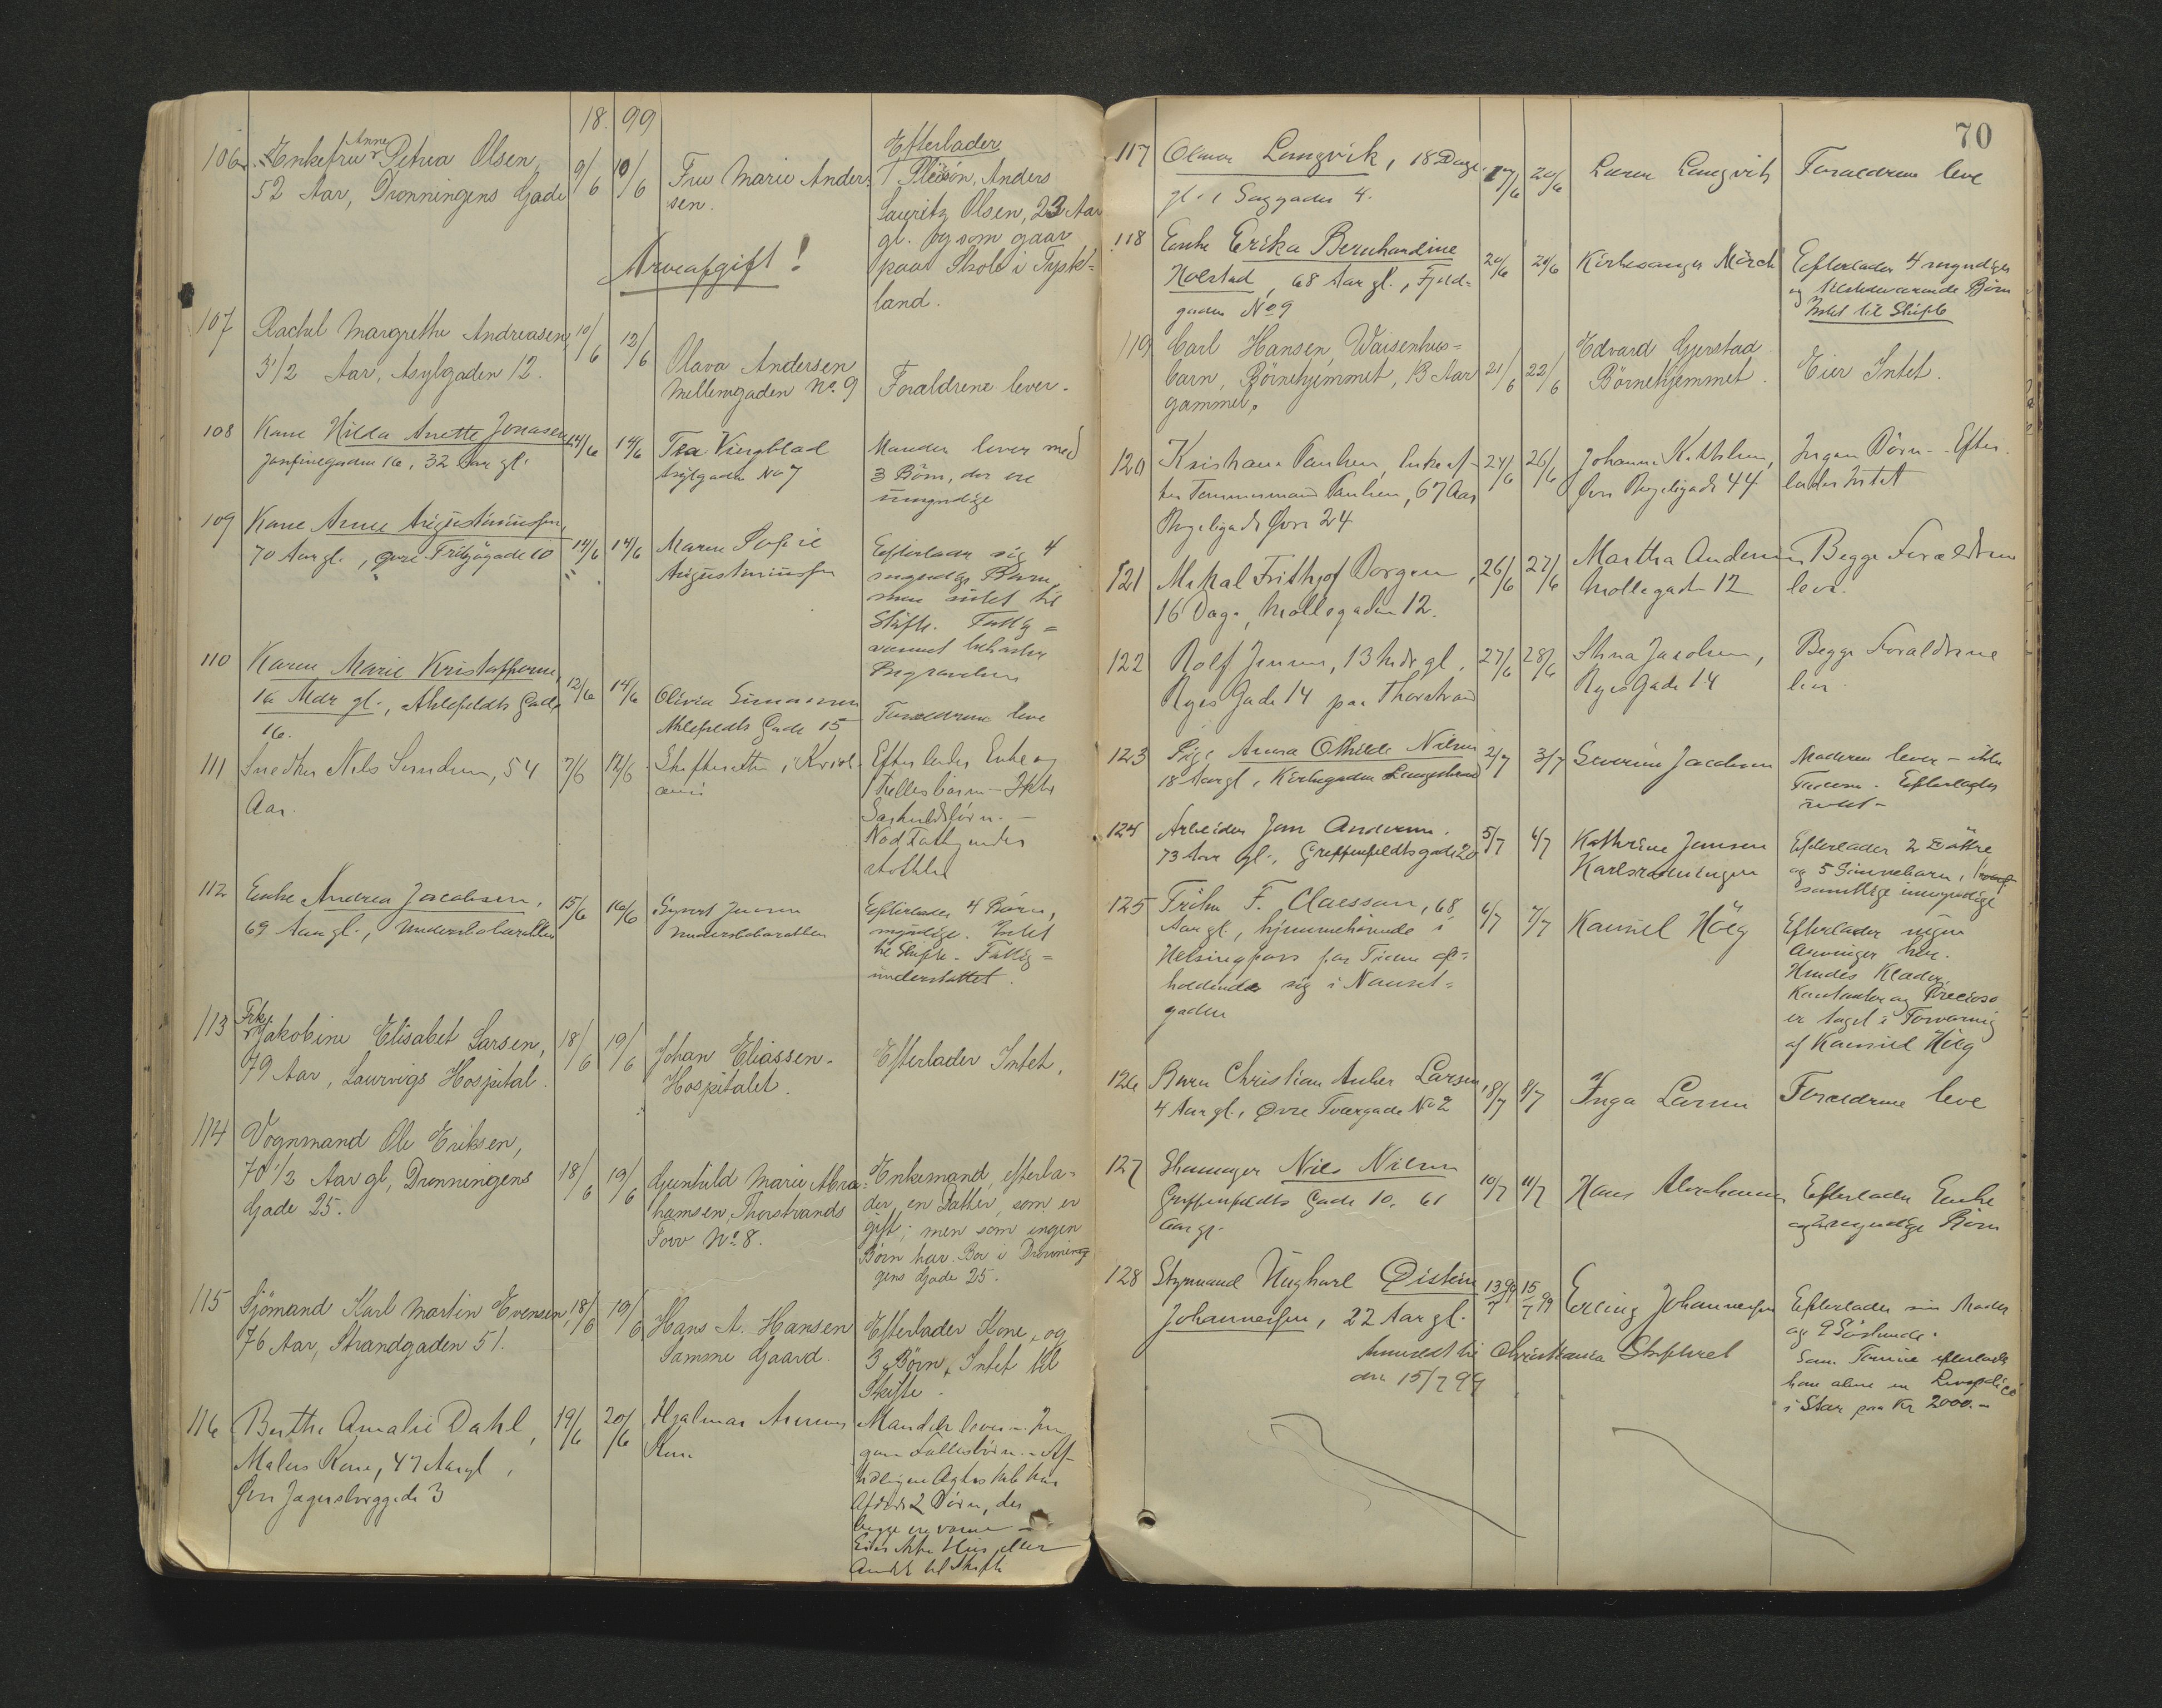 18 99
106. Enkefru Anne Petrea Olsen,
52 Aar, Dronningens Gade
9/6 10/6
Fru Marie Ander-
sen.
Arveafgift!
Efterlader
1 Pleiesøn, Anders
Lauritz Olsen, 23 Aar
gl. og som gaar
paa Skole i Tysk-
land.
107 Rachel Margrethe Andreasen,
3 1/2 Aar, Asylgaden 12.
10/6 12/6
Olava Andersen
Mellemgaden No. 9
Forældrene lever.
108 Kone Hilda Anette Jonasen
16, 32 Aar gl.
14/6 14/6
Asylgaden No 7
Manden lever med
3 Børn, der ere
umyndige
109 Kone Anne Augustinussen,
70 Aar gl., Øvre Fritzøgade 10
14/6 14/6
Maren Sofie
Augustinussen
Efterlader sig 4
myndige Børn,
men intet til
Skifte. Fattig=
væsenet bekoster
Begravelsen
110 Karen Marie Kristoffersen,
16 Mdr gl., Ahlefeldts Gade
16.
12/6 14/6
Olivia Simonsen
Ahlefeldts Gade 15
Forældrene leve
111 Snedker Nils 54
Aar.
7/6 12/6
Skifteretten i Kristi-
ania
Efterlader Enke og
1 Fællesbarn - Ikke
Særkuldsbørn. -
Nød Fattigunder-
støttelse
112 Enke Andrea Jacobsen,
69 Aar gl.,
15/6 16/6
Sivert Jensen
Efterlader 4 Børn,
myndige. Intet
til Skifte. Fattig=
understøttet.
113 Frk. Jakobine Elisabet Larsen,
79 Aar, Laurvigs Hospital.
18/6 19/6
Johan Eliassen.
Hospitalet.
Efterlader Intet.
114 Vognmand Ole Eriksen,
70 1/2 Aar gl, Dronningens
Gade 25.
18/6 19/6
Gunhild Marie Abra-
hamsen, Thorstrands
Torv No. 8.
Enkemand, efterla-
der en Datter, som er
gift; men som ingen
Børn har. Bor i Dronnin-
gens Gade 25.
115 Sjømand Karl Martin Evensen,
76 Aar, Strandgaden 51.
18/6 19/6
Hans A. Hansen
Samme Gaard.
Efterlader Kone og
3 Børn. Intet til
Skifte.
116 Berthe Amalie Dahl,
Malers Kone, 47 Aar gl,
Øvre Jægersborggade 3
19/6 20/6
Hjalmar
Manden lever. In-
gen Fællesbørn. Af
tidligere Ægteskab har
Afdøde 2 Børn, der
begge ere voxne -
Eier ikke Hus eller
Andet til Skifte
70
117 Olava Langvik, 18 Dage
gl. i Saggaden 4.
17/6 20/6
Laura Langvik
Forældrene leve
118 Enke Erika Bernhardine
Holstad, 68 Aar gl., Fjeld-
gaden No 9
20/6 20/6
Kirkesanger Mørch
Efterlader 4 myndige
og tilstedeværende Børn
Intet til Skifte
119 Carl Hansen, Waisenhus=
barn, Børnehjemmet, 13 Aar
gammel.
21/6 22/6
Edvard Gjerstad
Børnehjemmet.
Eier Intet.
120 Kristiane Paulsen, Enke ef-
ter Tømmermand Paulsen, 67 Aar
24
24/6 26/6
Johanne
44
Ingen Børn - Efter-
lader Intet
121 Mikal Frithjof Borgen,
16 Dage, Møllegaden 12.
26/6 27/6
Martha Andersen
Møllegaden 12
Begge Forældrene
lever.
122 Rolf Jensen, 13 Mdr gl,
Ryes Gade 14 paa Thorstrand
27/6 28/6
Stina Jacobsen,
Ryes Gade 14
Begge Forældrene
lever
123 Pige Anna Othilde Nilsen
18 Aar gl, Kirkegaden Langestrand
2/7 3/7
Severin Jacobsen
Moderen lever - ikke
Faderen. Efterlader
intet -
124 Arbeider Jon Andersen.
73 Aar gl., Griffenfeldtsgade 20
5/7 6/7
Kathrine Jensen
Efterlader 2 Døttre
og 5 Sønnebørn,
samtlige umyndige
125 Frøken F. Claesson, 68
Aar gl., hjemmehørende i
Helsingfors for Tiden op-
holdende sig i Nanset-
gaden
6/7 7/7
Konsul Høeg
Efterlader ingen
Arvinger her.
Hendes Klæder,
Kontanter og Preciosa
er taget i Forvaring
af Konsul Høeg
126 Barn Christian Anker Larsen,
4 Aar gl., Øvre Tværgade No 2
8/7 8/7
Inga Larsen
Forældrene leve
127 Skomager Nils Nilsen
Griffenfeldts Gade 10. 61
Aar gl.
10/7 11/7
Hans Abrahamsen
Efterlader Enke
og myndige Børn
128 Styrmand Øistein
Johannessen, 22 Aar gl.
13/7 99 15/7 99
Erling Johannessen
Anmeldt til Christiania Skifteret
den 15/7 99
Efterlader sin Moder
og 9 Søskende.
Som Formue efterlader
han alene en Livspolice
i Star paa Kr 2000.-